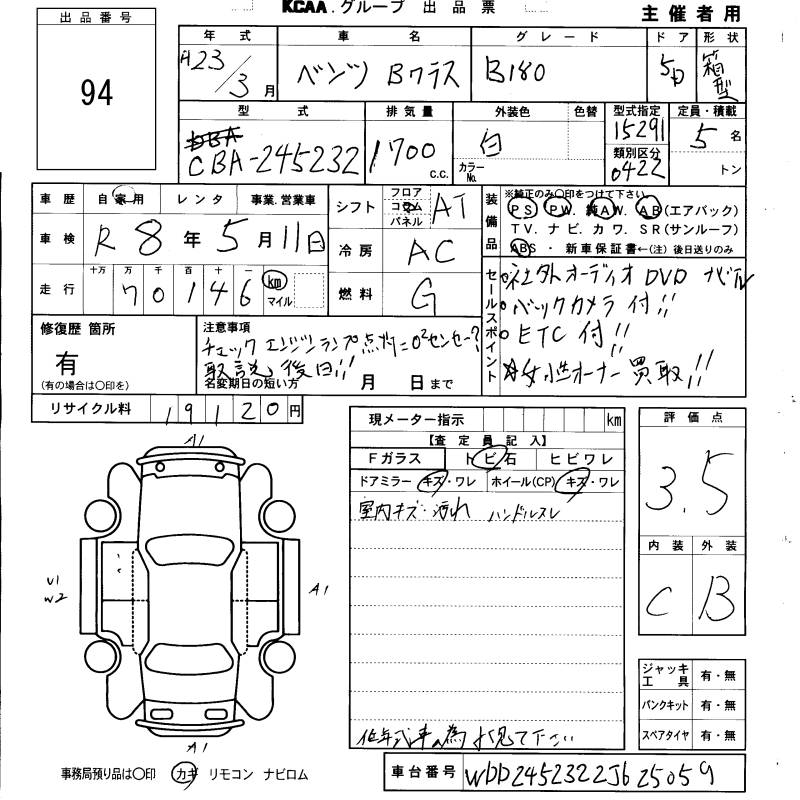 KCAA.グループ 出品票
主催者用
出品番号
94
年式 車名 グレード ドア 形状
H23/3月 ベンツ Bクラス B180 5D 箱型
型式 排気量 外装色 色替 型式指定 定員・積載
DBA
CBA-245232 1700 c.c. 白 カラーNo. 15291 5名
類別区分 0422 トン
車歴 自家用 レンタ 事業.営業車
シフト フロア コラム パネル AT
装備品
※純正のみ〇印をつけて下さい
PS PW. 純AW. AB(エアバック)
TV. ナビ. カワ. SR(サンルーフ)
ABS ・ 新車保証書←(注) 後日送りのみ
車検 R8年5月11日
冷房 AC
走行 十万 万 千 百 十 一
70146 km マイル
燃料 G
セールスポイント
社外オーディオ DVD ナビTV
バックカメラ付!!
ETC付!!
女性オーナー買取!!
修復歴 箇所
有
(有の場合は〇印を)
注意事項
チェックエンジンランプ点灯=O²センサー?
取説後日!!
名変期日の短い方 月 日まで
リサイクル料 19120円
現メーター指示 km
【査定員記入】
Fガラス トビ石 ヒビワレ
ドアミラー キズ・ワレ ホイール(CP) キズ・ワレ
室内キズ・汚れ ハンドルスレ
低年式車の為 お見て下さい
評価点
3.5
内装 外装
C B
A1
U1
W2
A1
A1
ジャッキ工具 有・無
パンクキット 有・無
スペアタイヤ 有・無
事務局預り品は〇印 カギ リモコン ナビロム
車台番号 WDD2452322J625059